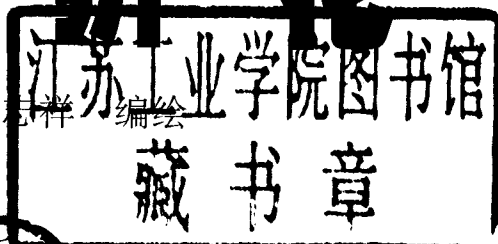 江苏工业学院图书馆
志祥 编绘
藏书章